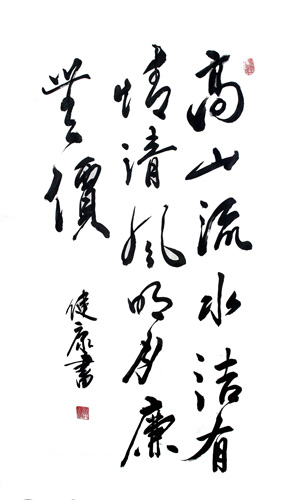 高山流水洁有
情清风明月廉
無價
健康書